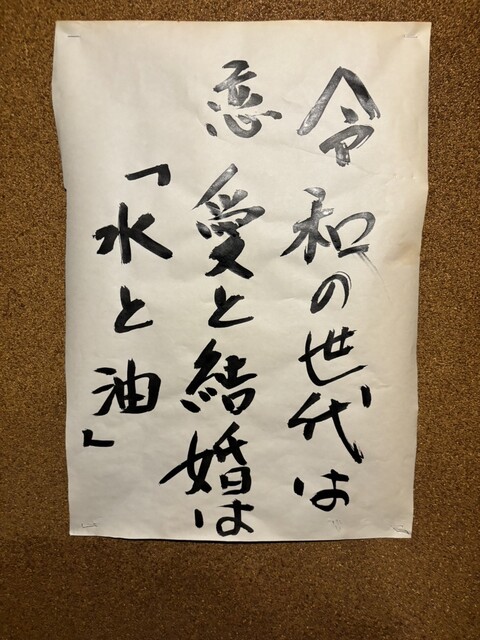 令和の世代は
恋愛と結婚は
「水と油」